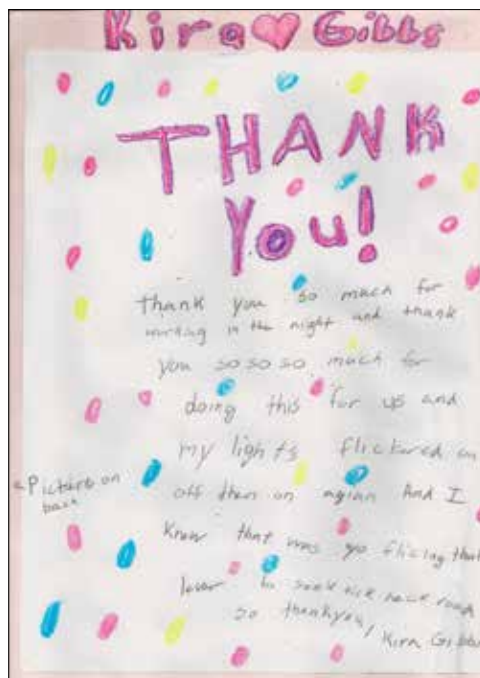 Kira Gibbs
THANK
You!
thank you so much for
working in the night and thank
you so so so much for
doing this for us and
my lights flickered on
off then on agian And I
Picture on
back
Knew that was yo flicing that
lever
so thankyou,
Kira Gibbs